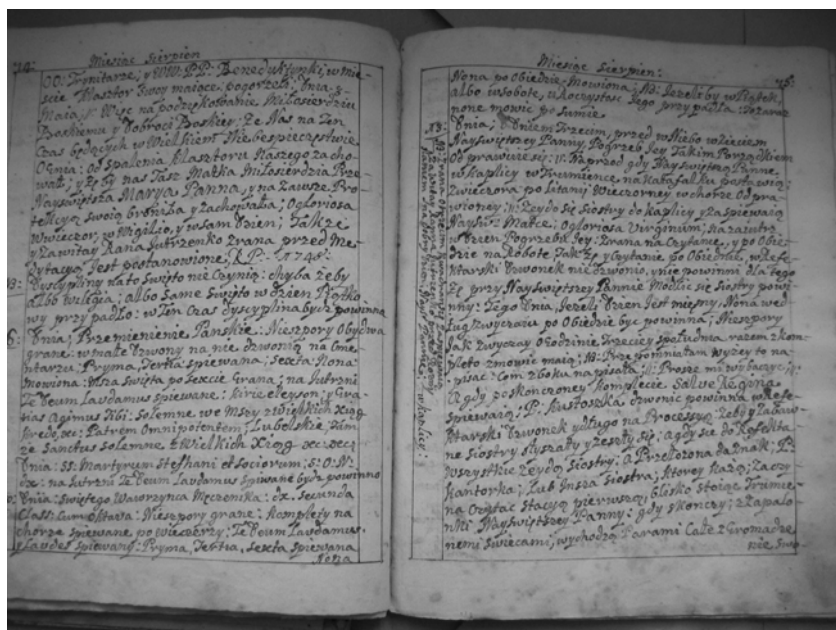 74:
Miesiąc Sierpien
OO: Trynitarze; y WW: PP: Benedyktynki, w mie-
scie Klasztor swoy maiące, pogorzeli, Dnia 8
Maia, Więc na podziękowanie Miłosierdziu
Boskiemu y Dobroci Boskiey; że Nas na ten
Czas będących w Wielkiem Niebespieczęstwie
Ognia: Od spalenia Klasztoru Naszego zacho-
wał; y żeby nas Tasz Matka Miłosierdzia Prze-
Nayswiętsza Marya Panna, y na Zawsze Pro-
tekcyą swoią broniła y Zachowała; O gloriosa
Wwieczor, w Wigilią, y w sam Dzien; Także
y Zawitay Rana Jutrzenko Zrana przed Me-
dytacyą Jest postanowione; R.P: 1748:
Dyscypliny na to Swięto nie Czynią: chyba żeby
albo Wilegia; albo Same Swięto w dzien Piątko
wy przypadło: w ten Czas dyscyplina byc powinna
6: Dnia; Przemienienie Panskie: Nieszpory Obydwa
grane: w małe Dzwony na nie dzwonią na Cme-
ntarzu; Pryma, Tertia spiewana; Sexta Nona
mowiona: Msza swięta po Sexcie Grana; na Jutrzni
Te Deum Laudamus spiewane: Kirie eleyson: y Gra-
tias Agimus tibi: Solemne we Mszy z Wielkich Xiąg
Credo, xc: Patrem Omnipotentem, Lubelskie, tam
że Sanctus Solemne z Wielkich Xiąg xc: xc:
Dnia: SS: Martyrum Stephani et Sociorum; S: O: N:
dx: na Jutrzni Te Deum Laudamus spiwane być powinno
Dnia: Swiętego Wawrzynca Męczenika: dx. Secunda
Class: Cum Oktava: Nieszpory grane: Komplety na
chorze spiewane, po wieczerzy: Te Deum Laudamus.
y Laudes spiewany: Pryma, Tertia, Sexta spiewana
Nona
Miesiąc Sierpien:
75:
Nona po Obiedzie Mowiona; NB: Jeżeli by w Piątek,
albo w Sobote, Uroczystosc Jego przypadła: To zaraz
none mowic po Summie
Dnia, Dniem Trzecim, przed w Niebo Wzięciem
Nayswiętszey Panny, Pogrzeb Jey Takim Porządkiem
Odprawuie się; Naprzod gdy Nayswiętszą Pannę
w Kaplicy w Trumience, na Katafalku postawią:
Zwieczora po Litanij Wieczorney w Chorze Odpra-
wioney; Zeydą się Siostry do Kaplicy y Zaspiewaią
Nayswi: Matce; O gloriosa Virginum; na zaiutrz
w Dzien Pogrzebu Jey: Zrana na Czytanie, y po Obie-
dzie na Robote Jak że y Czytanie po Obiednie, w Refe-
ktarski Dzwonek nie dzwonią, ynie powinni dla tego
Ze przy Nayswiętszey Pannie Modlic się Siostry powi-
nny: Tego Dnia, Jeżeli Dzien Jest mięsny, Nona wed-
ług Zwyczaiu po Obiedzie byc powinna; Nieszpory
Jak zwyczay Ogodzinie Trzeciey społudnia razem z Kom-
pletą zmowic maią; NB: Przepomniałam wyżey to na-
pisac: Com z boku napisała; Prosze mi wybaczyc;
A gdy po skonczoney Komplecie Salve Regina
spiewaią; P: Kustoszka dzwonic powinna w Refe-
ktarski Dzwonek y długo na Processyą, Zeby y Zabaw-
ne Siostry słyszały y zeszły się; a gdy się do Refekta-
wszystkie Zeydą Siostry: a Przełozona da Znak; P:
Kantorka; Lub Insza Siostra, Ktorey Każą; Zaczy-
na Czytac stacyą pierwszą; blisko stoiąc Trumie-
nki Nayswiętszey Panny; gdy skonczy; z Zapalo-
nemi Swiecami, wychodzą Parami Całe Zgromadze
nie, Swo-